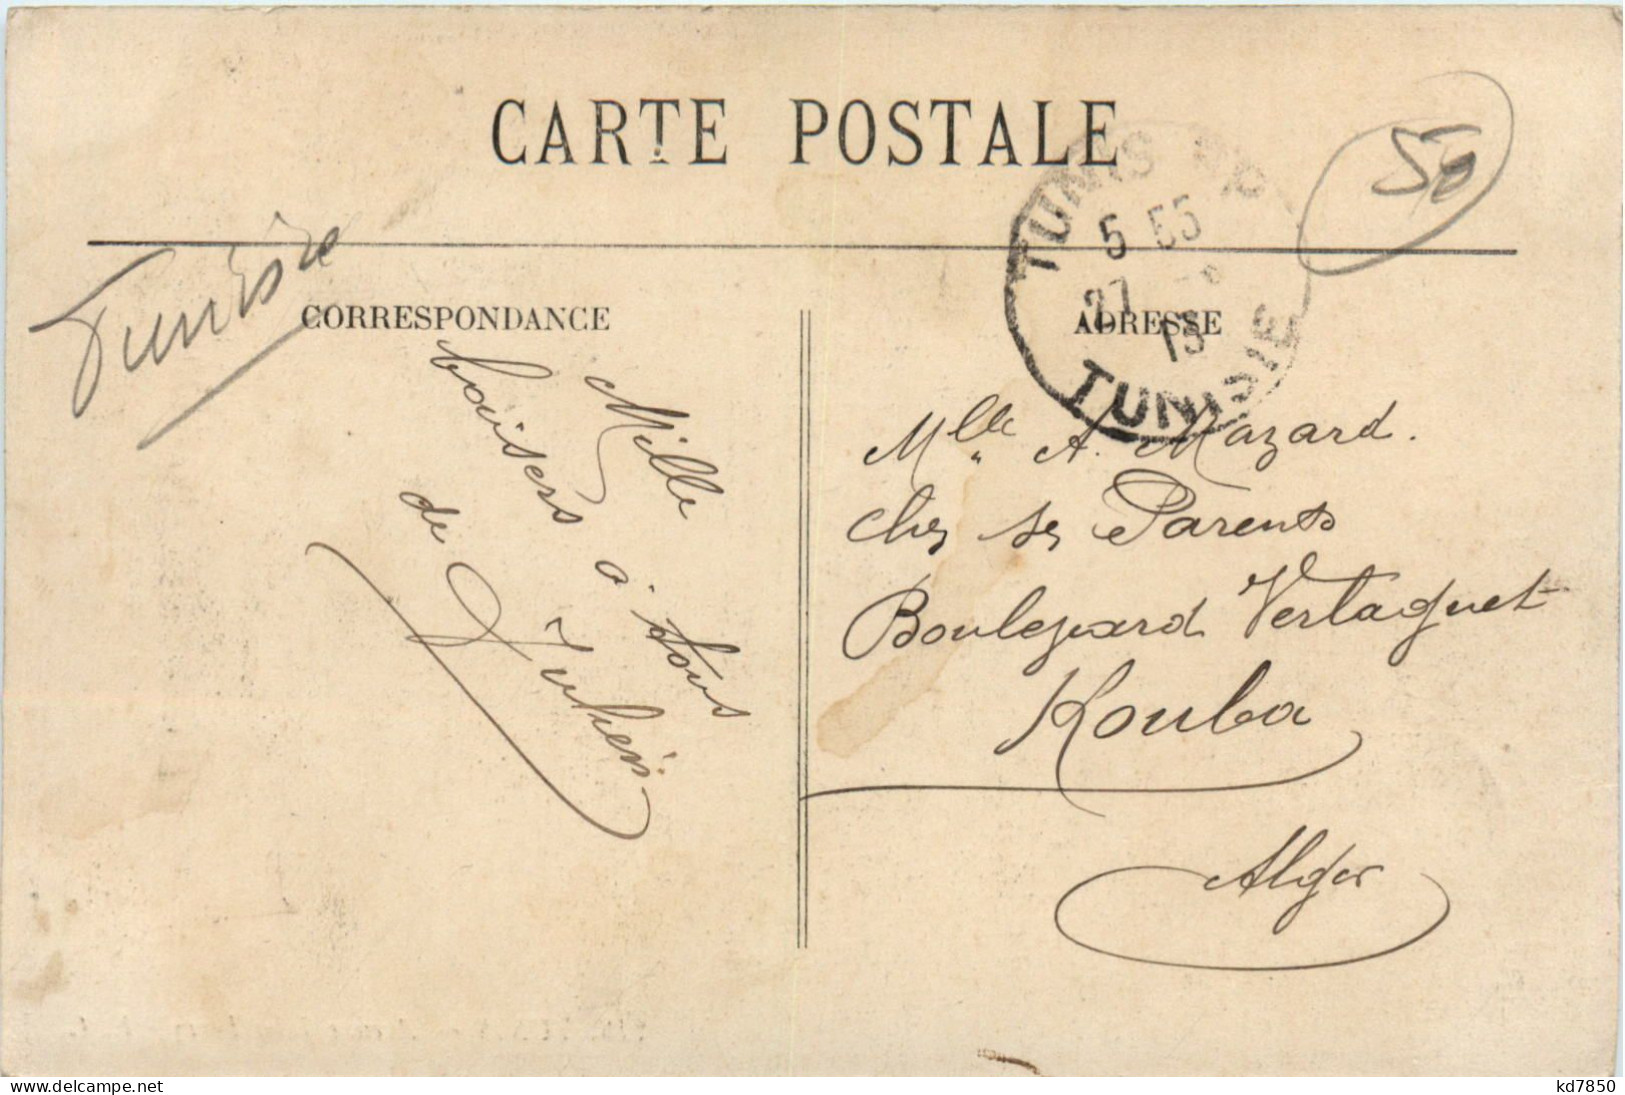 CARTE POSTALE
50
Tunisie
TUNIS RP
5 55
27
13
TUNISIE
CORRESPONDANCE
Mille
baisers à tous
de Julien
ADRESSE
Mlle A. Mazard.
chez ses Parents
Boulevard Verlaguet
Kouba
Alger
www.delcampe.net
kd7850